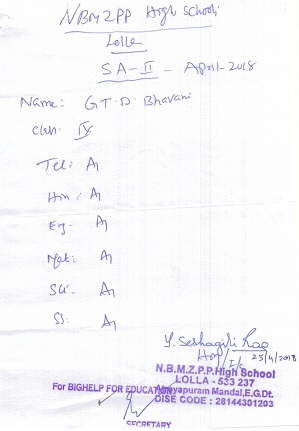 NBMZPP High School
Lolla
SA-II - April-2018
Name: G T. D. Bhavani
Class: IX
Tel: A1
Hin: A1
Eng: A1
Mat: A1
Sci: A1
SS: A1
Y. Seshagiri Rao
25/4/2018
N.B.M.Z.P.P.High School
LOLLA - 533 237
For BIGHELP FOR EDUCATION
Atreyapuram Mandal,E.G.Dt.
DISE CODE : 28144301203
SECRETARY